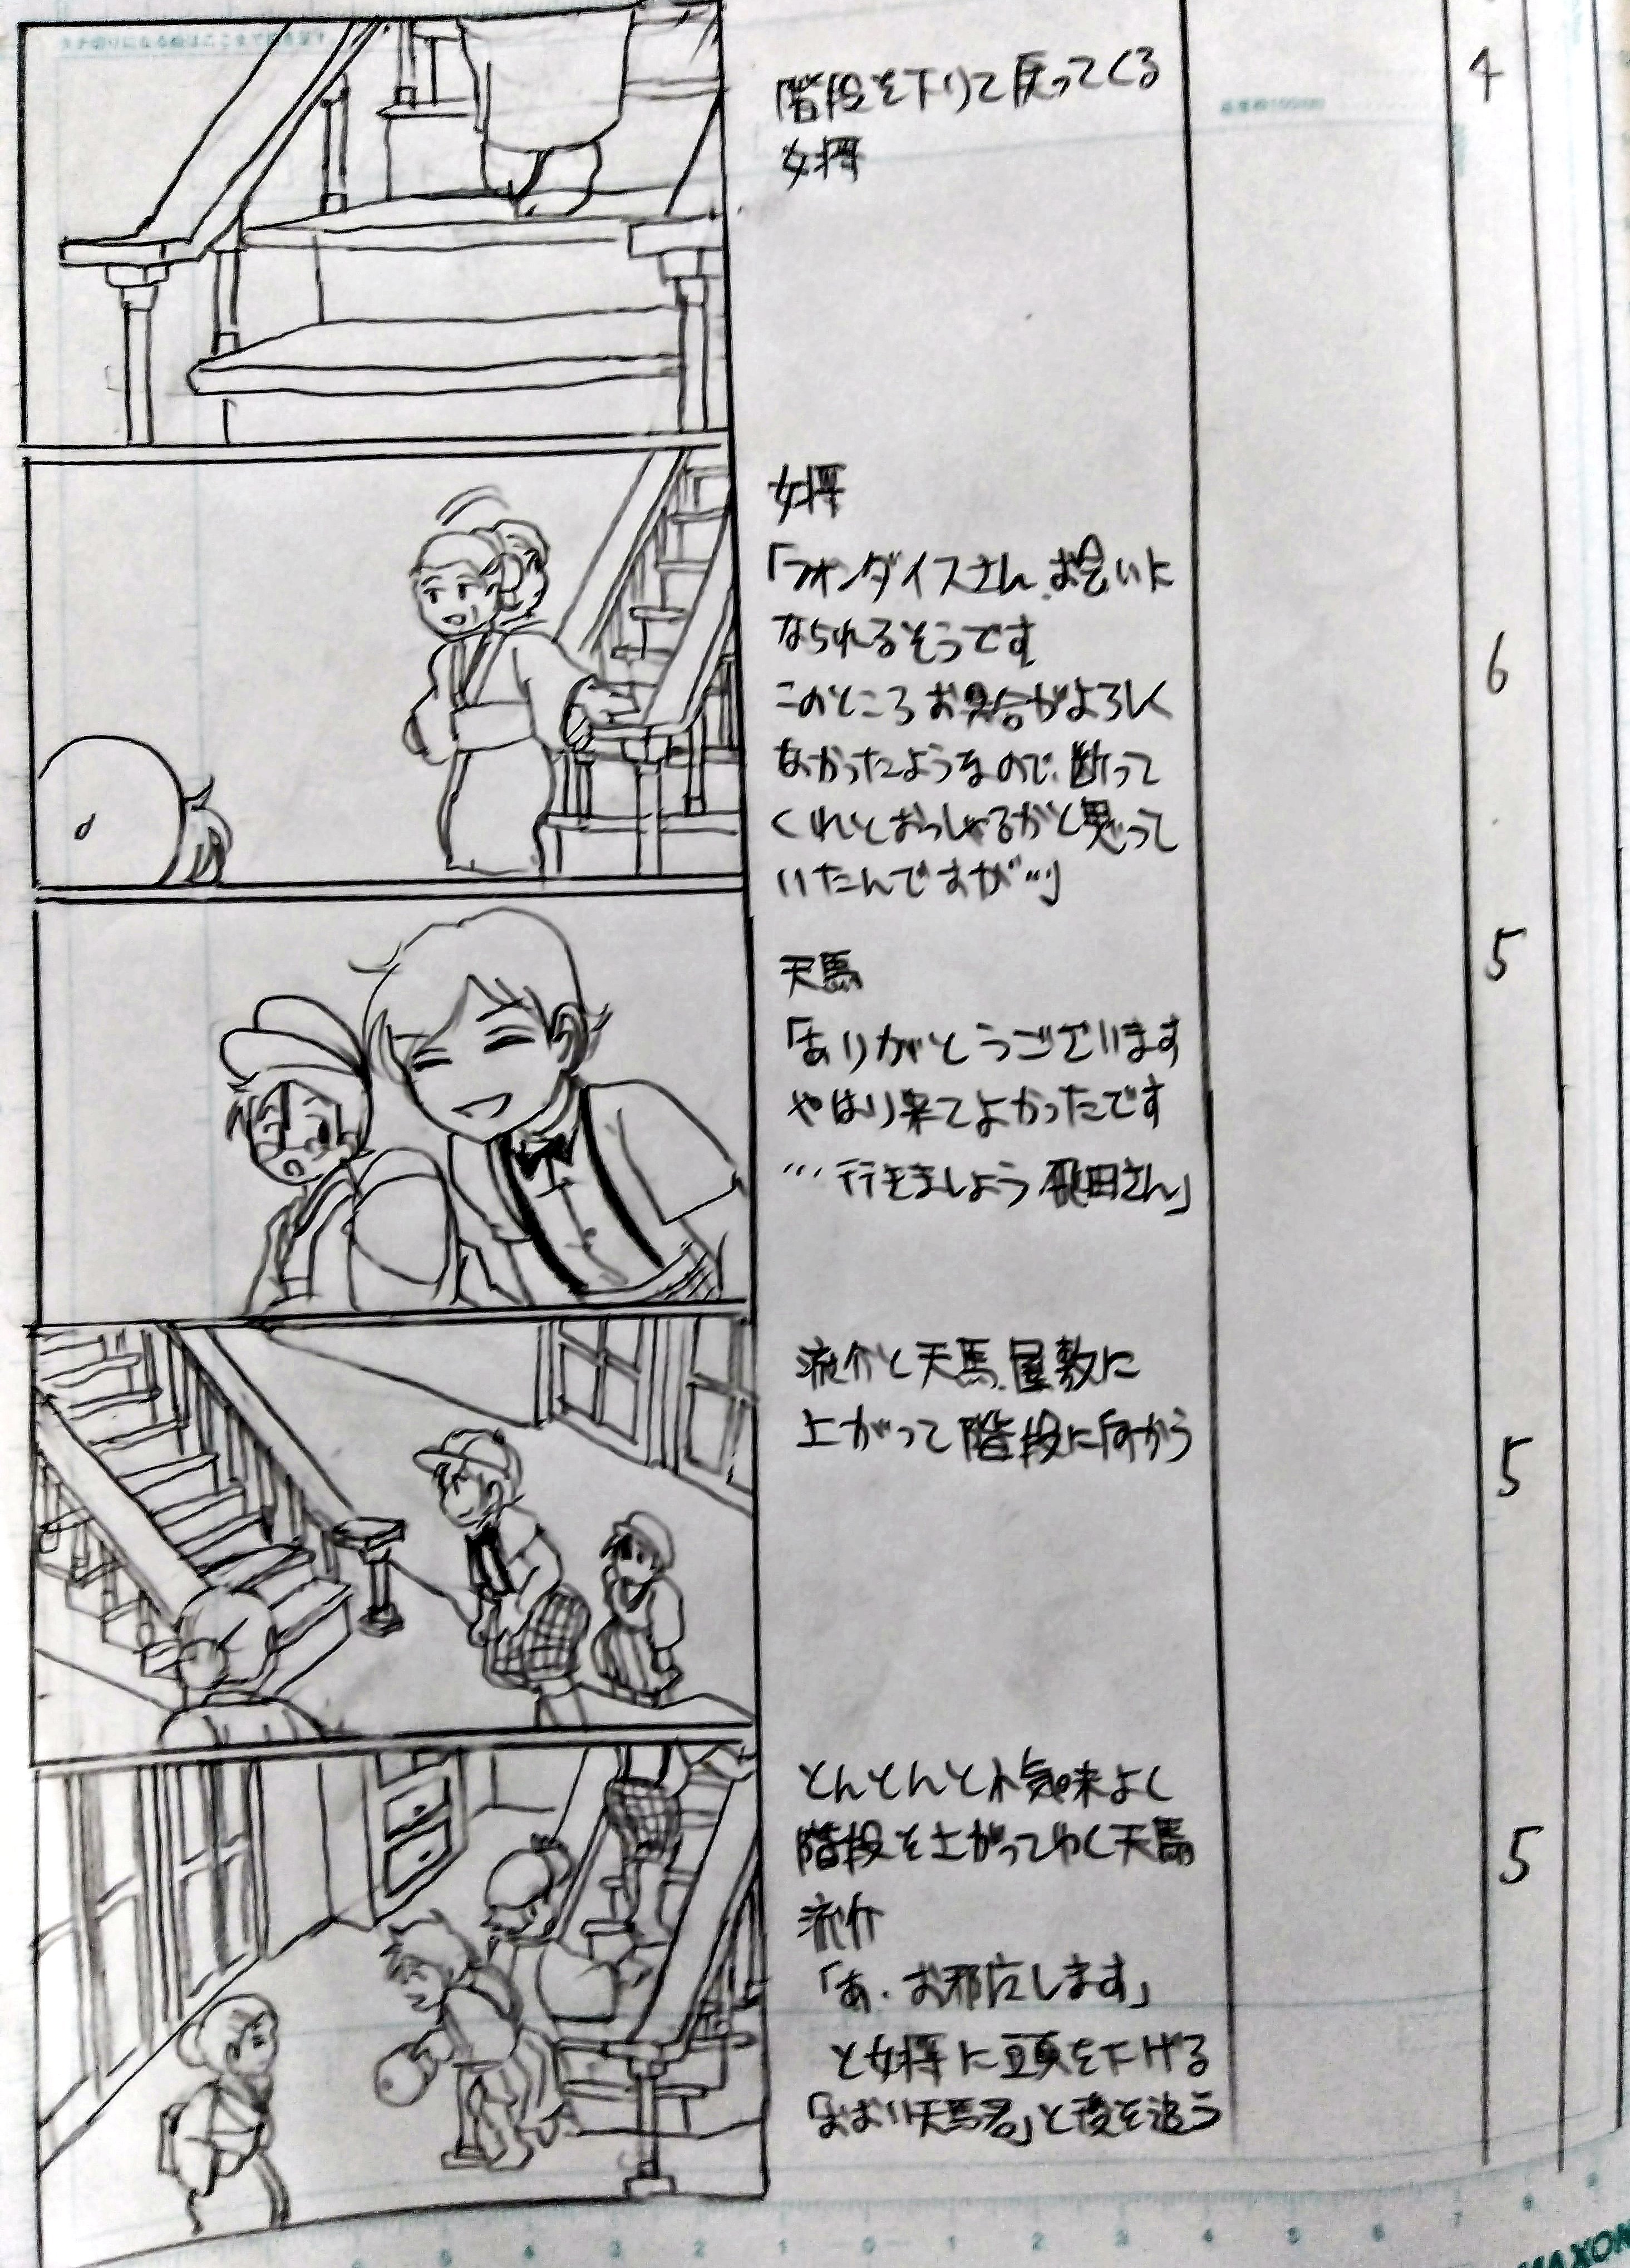 階段を下りて戻ってくる
女将
4
女将
「フォンダイスさん、お会いに
なられるそうです
このところお具合がよろしく
なかったようなので、断って
くれとおっしゃるかと思って
いたんですが…」
6
天馬
「ありがとうございます
やはり来てよかったです
…行きましょう飛田さん」
5
流介と天馬、屋敷に
上がって階段に向かう
5
とんとんと小気味よく
階段を上がってゆく天馬
流介
「あ・お邪广します」
と女将に頭を下げる
「おおい天馬君」と後を追う
5
5 4 3 2 1 0 1 2 3 4 5 6 7 8 9
MAXON